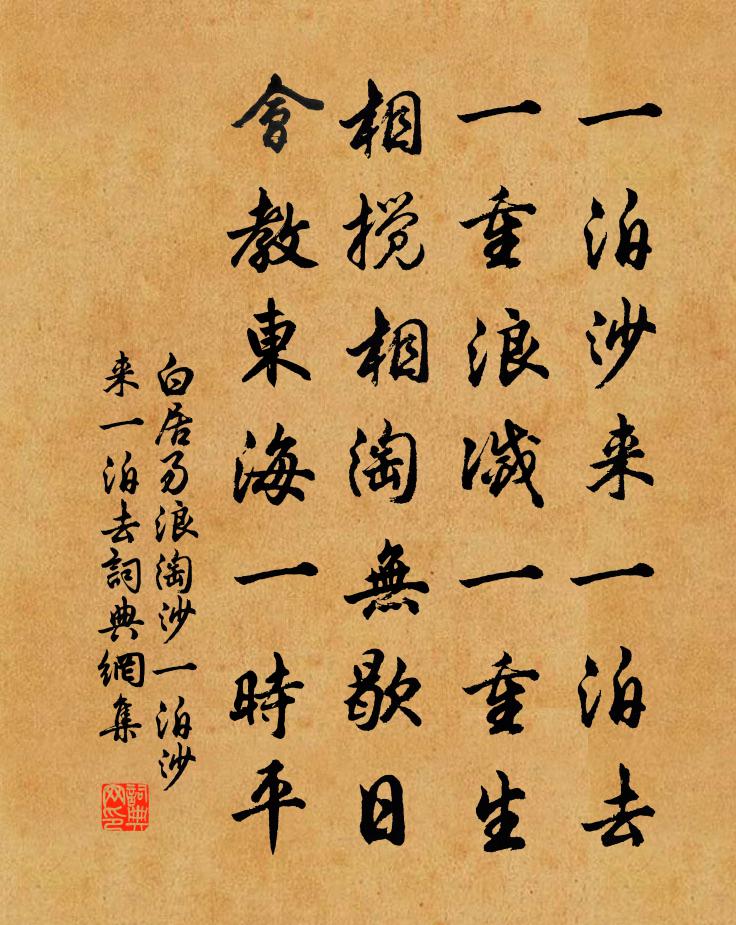 一泊沙来一泊去
一重浪滅一重生
相攪相淘無歇日
會教東海一時平
白居易浪淘沙一泊沙
来一泊去詞典網集
詞典
网印